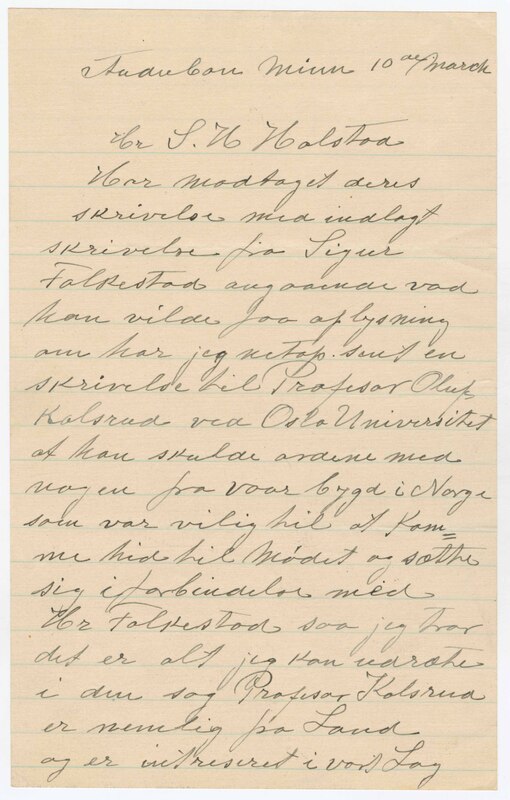 Audubon Minn 10de March
Hr S. H Holstad
Har modtaget deres
skrivelse med indlagt
skrivelse fra Sigur
Folkestad angaaende vad
han vilde faa oplysning
om har jeg netop sent en
skrivelse til Profesor Oluf
Kolsrud ved Oslo Universitet
at han skulde ordene med
nogen fra voor bygd i Norge
som var vilig til at Kom=
me hid til Mødet og sætte
sig i forbindelse med
Hr Folkestad saa jeg tror
det er alt jeg kan udrætte
i den sag Profesor Kolsrud
er nemlig fra Land
og er intreseret i vort Lag